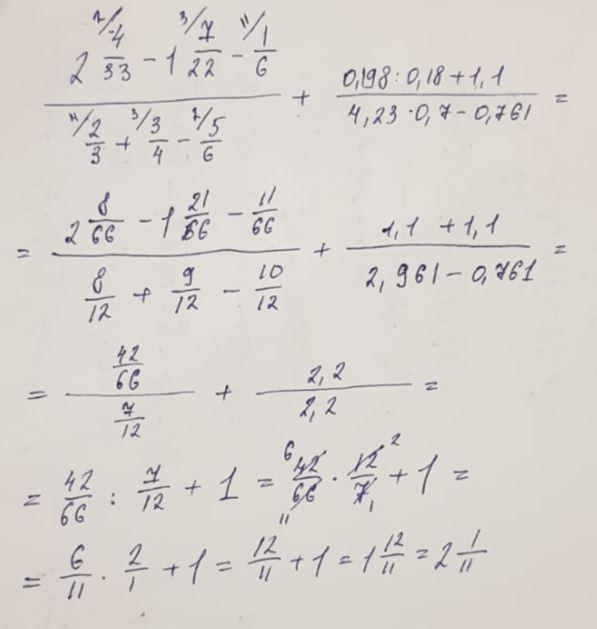 (2 ²/4/33 - 1 ³/7/22 - ¹¹/1/6) / (⁴/2/3 + ³/3/4 - ²/5/6) + (0,198 : 0,18 + 1,1) / (4,23 · 0,7 - 0,761) =
= (2 8/66 - 1 21/66 - 11/66) / (8/12 + 9/12 - 10/12) + (1,1 + 1,1) / (2,961 - 0,761) =
= (42/66) / (7/12) + 2,2 / 2,2 =
= 42/66 : 7/12 + 1 = ⁶42/66₁₁ · 12²/7₁ + 1 =
= 6/11 · 2/1 + 1 = 12/11 + 1 = 1 12/11 = 2 1/11